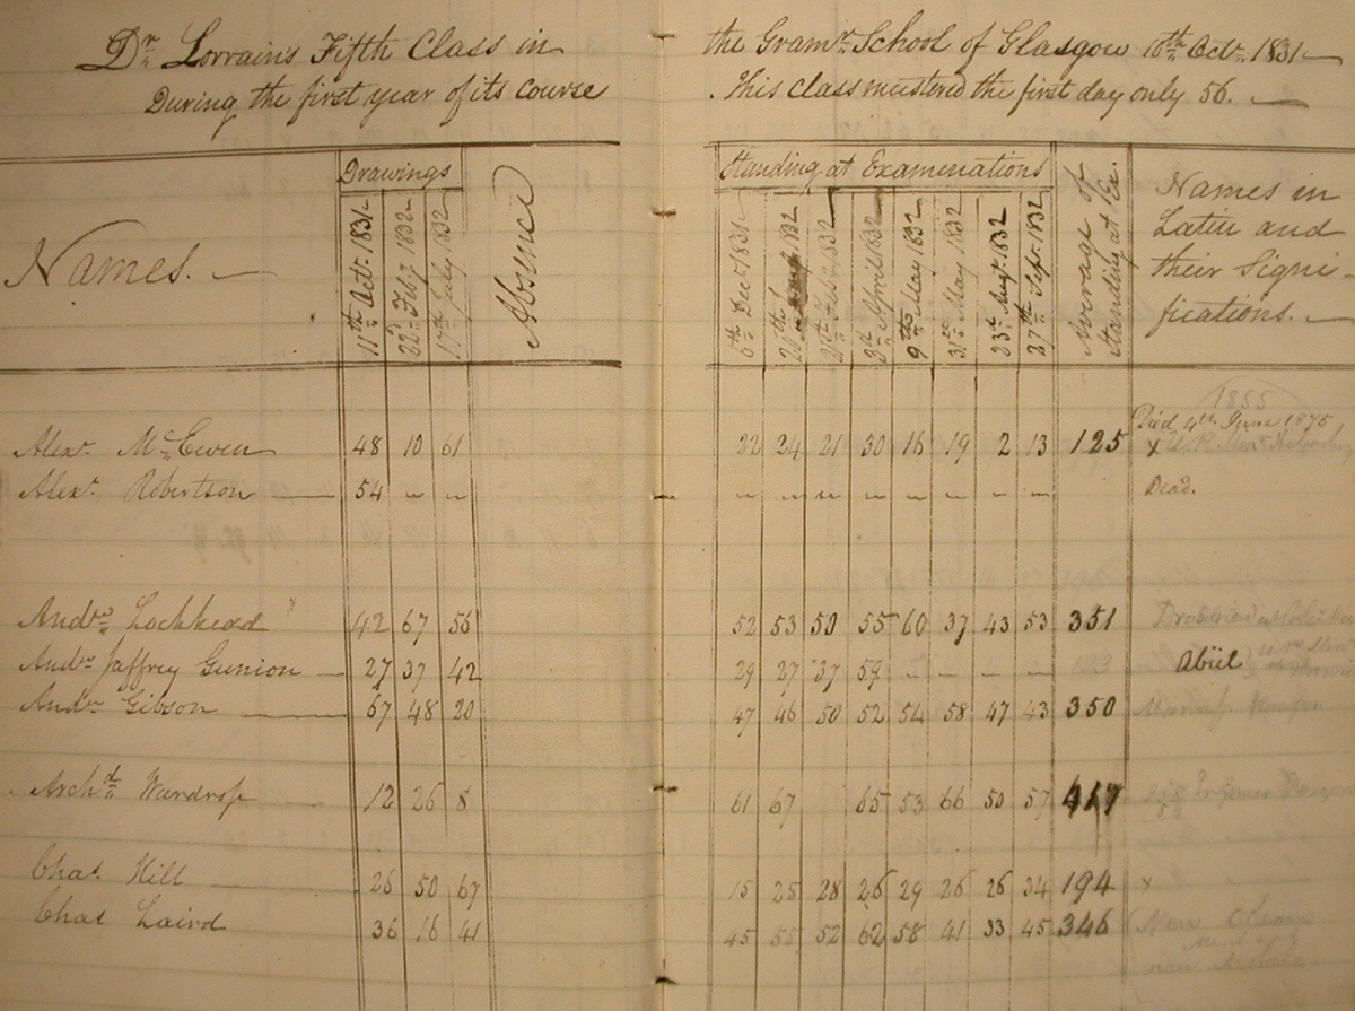 Dr Lorrain's Fifth Class in the Gramr School of Glasgow 10th Octr 1831
During the first year of its course. This class mustered the first day only 56.
Names.
Drawings
11th Octr 1831
22d Feby 1832
17th July 1832
Absence
Standing at Examinations
6th Decr 1831
1832
Feby 1832
3d April 1832
9th May 1832
31st May 1832
23d Augt 1832
27th Sept 1832
Average of Standing at Ex.
Names in
Latin and
their Signi-
fications.
1855
Died 4th June 1875
Alexr McEwen 48 10 61 22 24 21 30 16 19 2 13 125 x
Alexr Robertson 54 Dead.
Andrw Lochhead 42 67 56 52 53 50 55 60 37 43 53 351
Andrw Jaffrey Gunion 27 37 42 29 27 37 59 Abiit
Andrw Gibson 67 48 20 47 46 50 52 54 58 47 43 350
Archd Wardrop 12 26 8 61 67 65 53 66 50 57 417
Chas Hill 26 50 67 15 25 28 26 29 26 26 34 194 x
Chas Laird 36 16 41 45 55 52 62 58 41 33 45 346 New Orleans